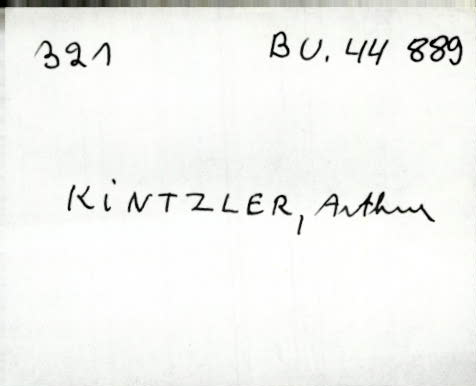 321 BU. 44 889
KiNTZLER, Arthur